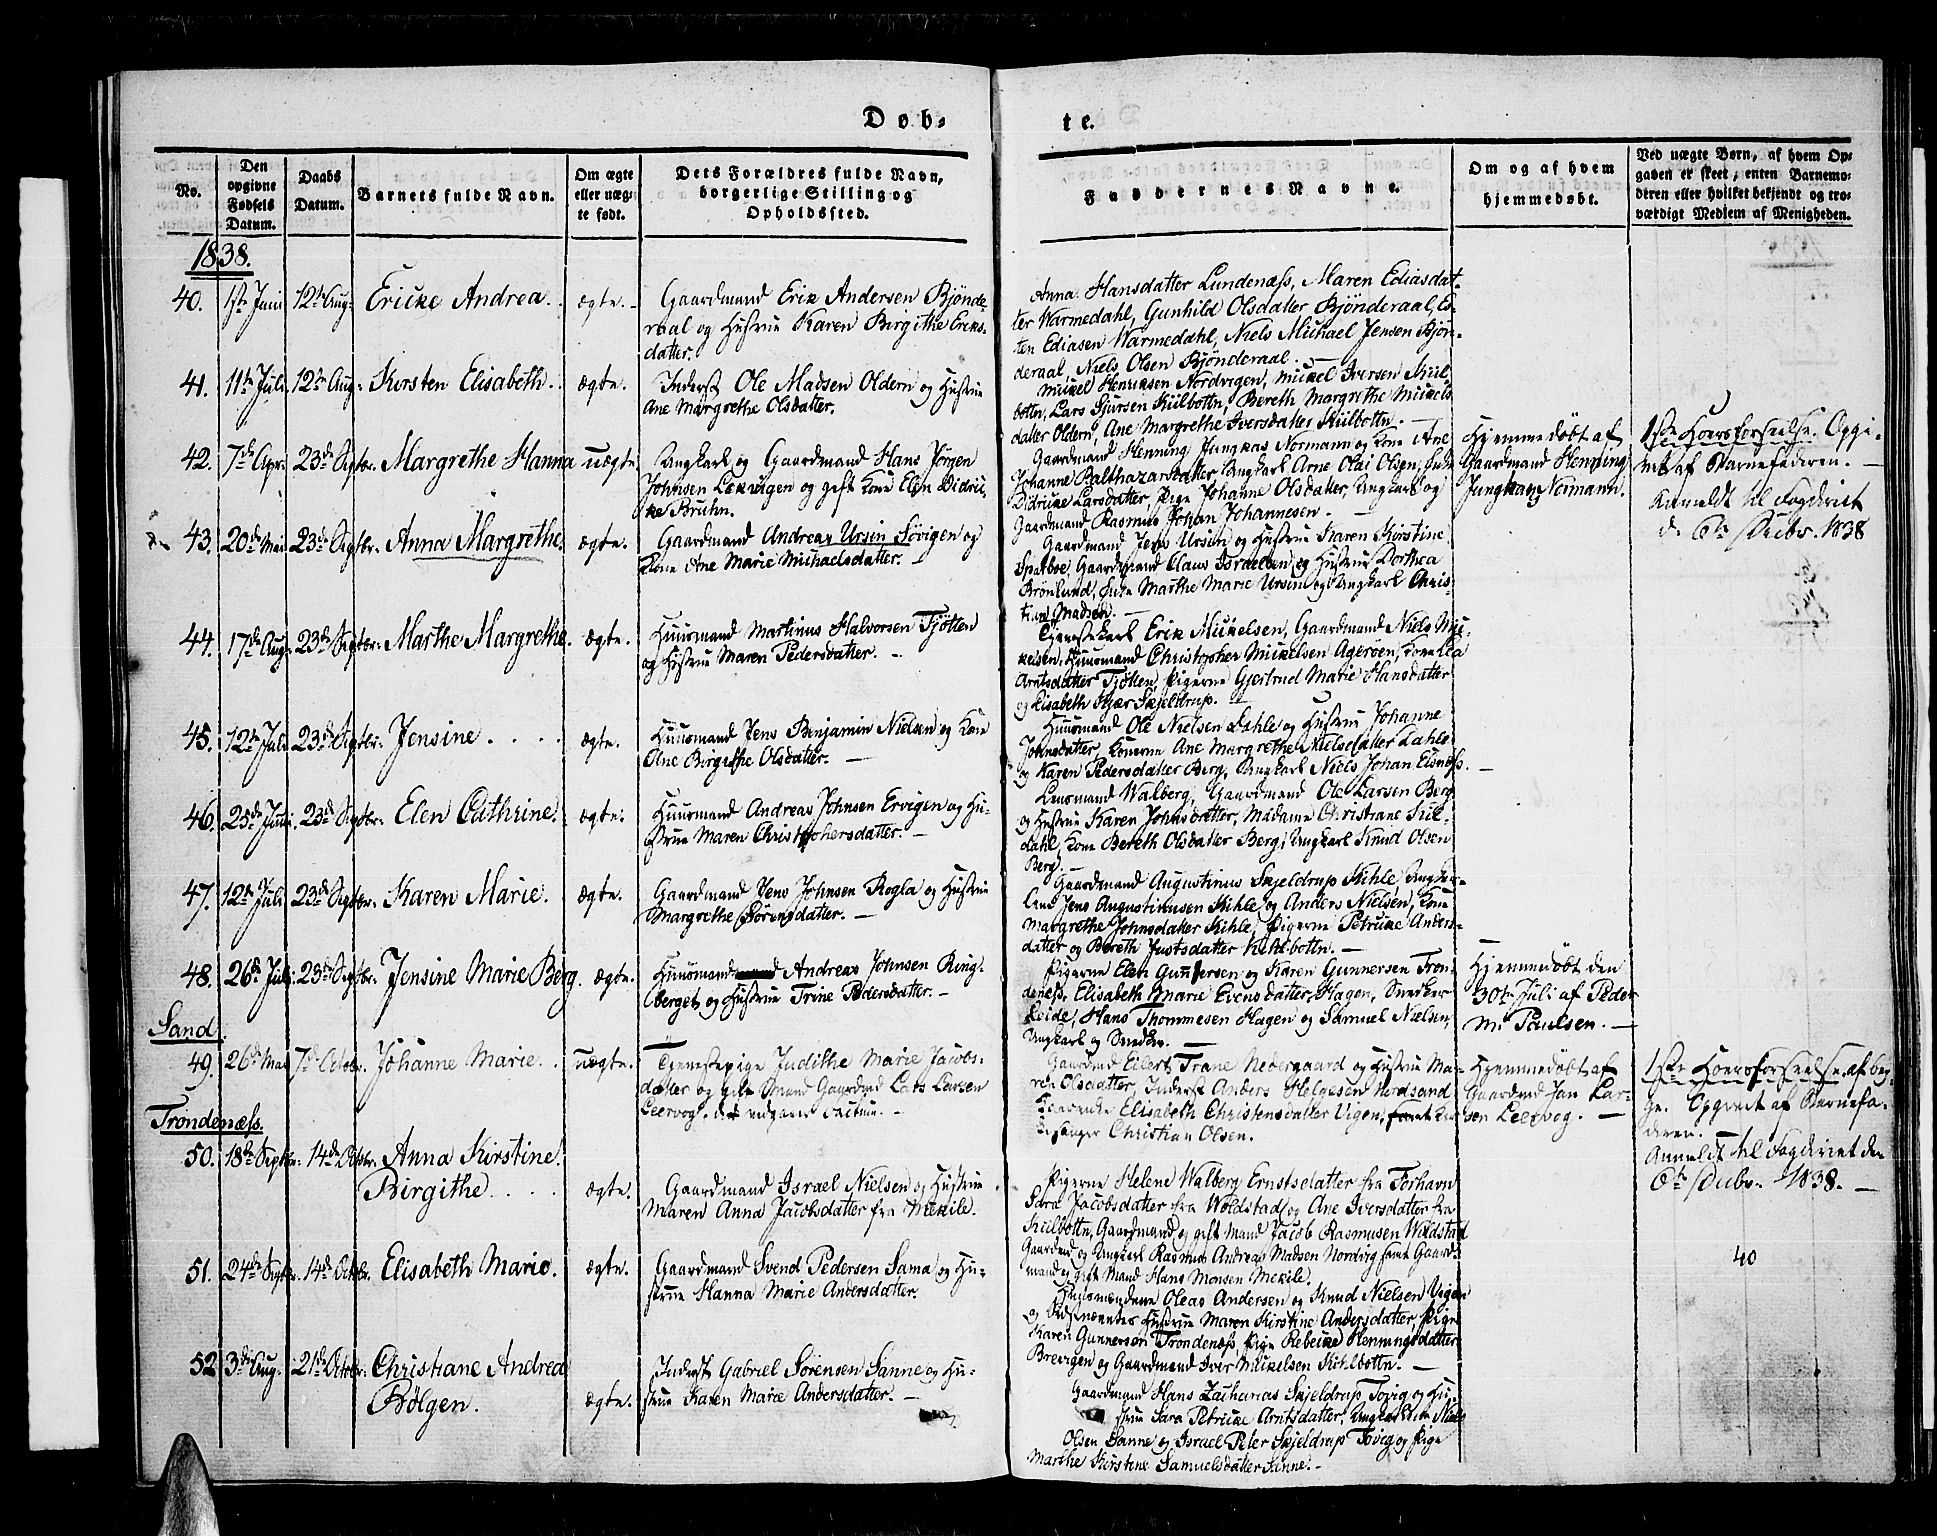 Døb-
te.
No.
Den opgivne Fødsels Datum.
Daabs Datum.
Barnets fulde Navn.
Om ægte eller uægte født.
Dets Forældres fulde Navn, borgerlige Stilling og Opholdssted.
Faddernes Navne.
Om og af hvem hjemmedøbt.
Ved uægte Børn, af hvem Opgaven er skeet, enten Barnemoderen eller hvilket bekjendt og troværdigt Medlem af Menigheden.
1838.
40. 1ste Juni 12te Aug: Ericke Andrea. ægte.
Gaardmand Erik Andersen Bjønde-
raal og Hustrue Karen Birgithe Eriks-
datter.
Anna Hansdatter Lundenæss, Maren Ediasdat-
ter Warmedahl, Gunhild Olsdatter Bjønderaal, Es-
ten Ediasen Warmedahl, Niels Michael Jensen Bjøn-
deraal, Niels Olsen Bjønderaal.
41. 11te Juli 12te Aug: Kirsten Elisabeth. ægte.
Inderst Ole Madsen Oldern og Hustrue
Ane Margrethe Olsdatter.
Mikel Henriksen Nordvigen, Mikel Iversen Kiil-
bottn, Lars Sjursen Kiilbottn, Bereth Margrethe Mikels
datter Oldern, Ane Margrethe Iversdatter Kiilbottn.
42. 7de Apr: 23de Septbr: Margrethe Hanna uægte
Ungkarl og Gaardmand Hans Jørgen
Johnsen Lekvigen og gift Kone Elen Didric-
ke Bruhn.
Gaardmand Henning Junghans Normann og Kone Ane
Johanne Balthazarsdatter, Ungkarl Arne Olai Olsen,
Didricke Larsdatter, Pige Johanne Olsdatter, Ungkarl og
Gaardmand Rasmus Johan Johannesen.
Hjemmedøbt af
Gaardmand Henning
Junghans Normann.
1ste Hoersforseelse. Opgi-
vet af Barnefaderen.
Anmeldt til Fogderiet
d. 6te Decbr. 1838
43. 20de Mai 23de Septbr: Anna Margrethe. ægte.
Gaardmand Andreas Ursin Søvigen og
Kone Ane Marie Michaelsdatter.
Gaardmand Jens Ursin og Hustrue Karen Kirstine
Gaardmand Claus Israelsen og Hustrue Dorthea
Brønlund, Marthe Marie Ursin og Ungkarl Chris-
tian Madsen.
44. 17de Aug: 23de Septbr: Marthe Margrethe. ægte.
Huusmand Martinus Halvorsen Tjøtten
og Hustrue Maren Pedersdatter.
Tjenestekarl Erik Mikelsen, Gaardmand Niels Mi-
kelsen, Huusmand Christopher Mikelsen Agerøen, Kone Lea
Arntsdatter Tjøtten, Pigerne Gjertrud Marie Hansdatter
og Elisabeth Kjær Skjeldrup.
45. 12te Juli 23de Septbr: Jensine ægte.
Huusmand Jens Benjamin Nielsen og Kone
Ane Birgithe Olsdatter.
Huusmand Ole Nielsen Dahle og Hustrue Johanne
Johnsdatter, Konerne Ane Margrethe Nielsdatter Dahle
og Karen Pedersdatter Berg, Ungkarl Niels Johan Elsnæss.
46. 25de Juni 23de Septbr: Elen Cathrine. ægte.
Huusmand Andreas Johnsen Ervigen og Hu-
strue Maren Christophersdatter.
Lensmand Walberg, Gaardmand Ole Larsen Berg
og Hustrue Karen Johnsdatter, Madame Christiane Kiil-
dahl, Kone Bereth Olsdatter Berg, Ungkarl Knud Olsen
Berg.
47. 12te Juli 23de Septbr: Karen Marie. ægte.
Gaardmand Jens Johnsen Rogla og Hustrue
Margrethe Sørensdatter.
Gaardmand Augustinus Skjeldrup Kihle, Ungkar-
lene Jens Augustinusen Kihle og Anders Nielsen, Kone
Margrethe Johnsdatter Kihle, Pigerne Petricke Anders-
datter og Bereth Justsdatter Kihlbottn.
48. 26de Juli 23de Septbr: Jensine Marie Berg. ægte.
Huusmand Andreas Johnsen Ring-
berget og Hustrue Trine Pedersdatter.
Pigerne Elen Gunnersen og Karen Gunnersen Tron-
denæss, Elisabeth Marie Evensdatter Hagen, Snedker
Hans Thommesen Hagen og Samuel Nielsen,
Ungkarl og Snedker.
Hjemmedøbt den
30te Juli af Peder
Paulsen.
Sand.
49. 26de Mai 7de Octobr. Johanne Marie. uægte.
Tjenestepige Judithe Marie Jacobs-
datter og gift Mand Gaardmd Lars Larsen
Leervog.
Gaardmd Eilert Trane Nedergaard og Hustrue Ma-
ren Olsdatter, Inderst Anders Helgesen Nordsand
Elisabeth Christensdatter Vigen, samt Kir-
kesanger Christian Olsen.
Hjemmedøbt af
Gaardmd Jan Lar-
sen Leervog.
1ste Hoersforseelse af beg-
ge. Opgivet af Barnefa-
deren.
Anmeldt til Fogderiet den
6te Decbr. 1838.
Trondenæss.
50. 18de Septbr: 14de Octobr. Anna Kirstine
Birgithe. ægte.
Gaardmand Israel Nielsen og Hustrue
Maren Anna Jacobsdatter fra Mekile.
Pigerne Helene Walberg Ernstsdatter fra Torhavn
Sara Jacobsdatter fra Woldstad og Ane Iversdatter fra
Kiilbottn, Gaardmand og gift Mand Jacob Rasmusen Woldstad
Gaardmd og Ungkarl Rasmus Andreas Madsen Nordvig samt Gaard-
mand og gift Mand Hans Monsen Mekile.
51. 24de Septbr. 14de Octobr. Elisabeth Marie. ægte.
Gaardmand Svend Pedersen Sama og Hu-
strue Hanna Marie Andersdatter.
Huusmændene Oleas Andersen og Knud Nielsen Vigen
og Sidstnævntes Hustrue Maren Kirstine Andersdatter, Pige
Karen Gunnersen Trondenæss, Pige Rebecke Henningsdatter
Brevigen og Gaardmand Iver Mikelsen Kihlbottn.
40
52 3die Aug: 21de Octobr: Christiane Andrea
Bølgen. ægte.
Inderst Gabriel Sørensen Sanne og Hu-
strue Karen Marie Andersdatter.
Gaardmand Hans Zacharias Skjeldrup Tovig og Hu-
strue Sara Petricke Arntsdatter, Ungkarlene Niels
Olsen Sanne og Israel Peter Skjeldrup Tovig og Pige
Marthe Kirstine Samuelsdatter Sanne.